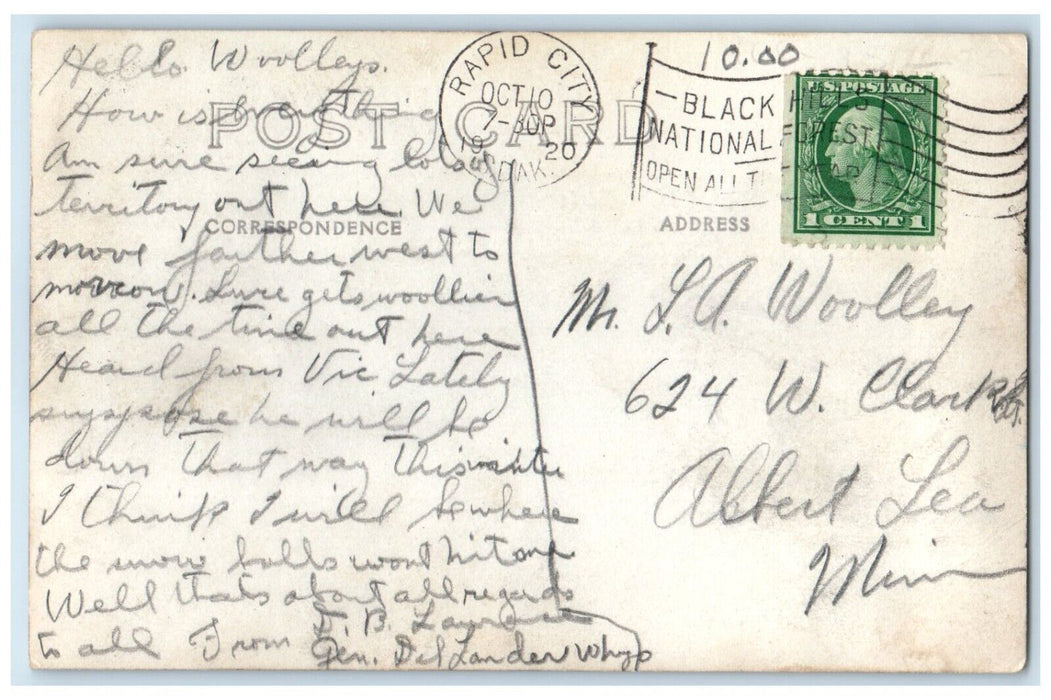 Hello Woolleys.
How is everything
Am sure seeing lots of
territory out here. We
move farther west to
morrow. Sure gets woollier
all the time out here
Heard from Vic Lately
suspose he will be
down that way this winter
I think I will be where
the snow balls wont hit me
Well thats about all regards
to all From F. B. Lawrence
Gen. Del Lander Whyo
POST CARD
CORRESPONDENCE
ADDRESS
RAPID CITY
OCT 10
7-30P
19 20
S.DAK.
10.00
BLACK HILLS
NATIONAL FOREST
OPEN ALL THE YEAR
U.S. POSTAGE
1 CENT 1
Mr. L. A. Woolley
624 W. Clark St.
Albert Lea
Minn